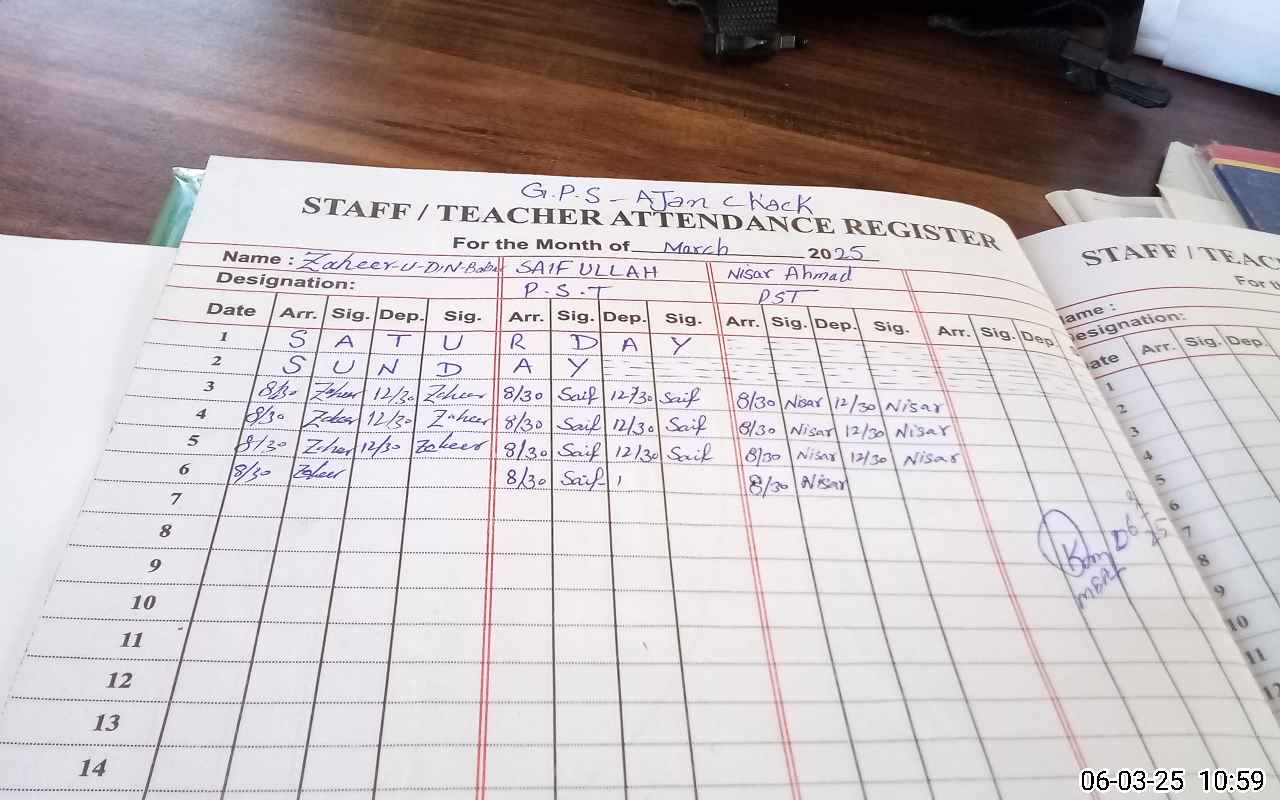 G.P.S - AJan cHack
STAFF / TEACHER ATTENDANCE REGISTER
For the Month of March 2025
Name : Zaheer-U-DiN-Babar SAIF ULLAH Nisar Ahmad
Designation: P.S.T PST
Date Arr. Sig. Dep. Sig. Arr. Sig. Dep. Sig. Arr. Sig. Dep. Sig. Arr. Sig. Dep.
1 S A T U R D A Y
2 S U N D A Y
3 8/30 Zaheer 12/30 Zaheer 8/30 Saif 12/30 Saif 8/30 Nisar 12/30 Nisar
4 8/30 Zaheer 12/30 Zaheer 8/30 Saif 12/30 Saif 8/30 Nisar 12/30 Nisar
5 8/30 Zaheer 12/30 Zaheer 8/30 Saif 12/30 Saif 8/30 Nisar 12/30 Nisar
6 8/30 Zaheer 8/30 Saif 8/30 Nisar
7
8
9
10
11
12
13
14
STAFF / TEAC
For th
ame :
esignation:
ate Arr. Sig. Dep.
1
2
3
4
5
6
7
8
9
10
11
12
06-03-25 10:59